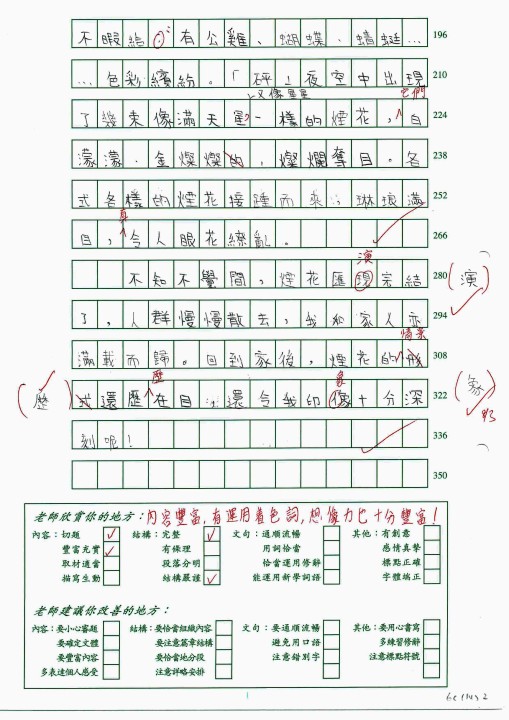 不暇給。有公雞、蝴蝶、蜻蜓… 196
…色彩繽紛。「砰!夜空中出現 210
又像星星 它們
了幾束像滿天星一樣的煙花,白 224
濛濛、金燦燦的,燦爛奪目。各 238
式各樣的煙花接踵而來,琳琅滿 252
真
目,令人眼花繚亂。 266
演
不知不覺間,煙花匯現完結 280 (演)
了,人群慢慢散去,我和家人亦 294
情景
滿載而歸。回到家後,煙花的形 308
歷 象
(歷) 式還歷在目,還令我印像十分深 322 (象)
刻呢! 336
350
老師欣賞你的地方:內容豐富,有運用着色詞,想像力也十分豐富!
內容:切題 結構:完整 文句:通順流暢 其他:有創意
豐富充實 有條理 用詞恰當 感情真摯
取材適當 段落分明 恰當運用修辭 標點正確
描寫生動 結構嚴謹 能運用新學詞語 字體端正
老師建議你改善的地方:
內容:要小心審題 結構:要恰當組織內容 文句:要通順流暢 其他:要用心書寫
要確定文體 要注意篇章結構 避免用口語 多練習修辭
要豐富內容 要恰當地分段 注意錯別字 注意標點符號
多表達個人感受 注意詳略安排
1